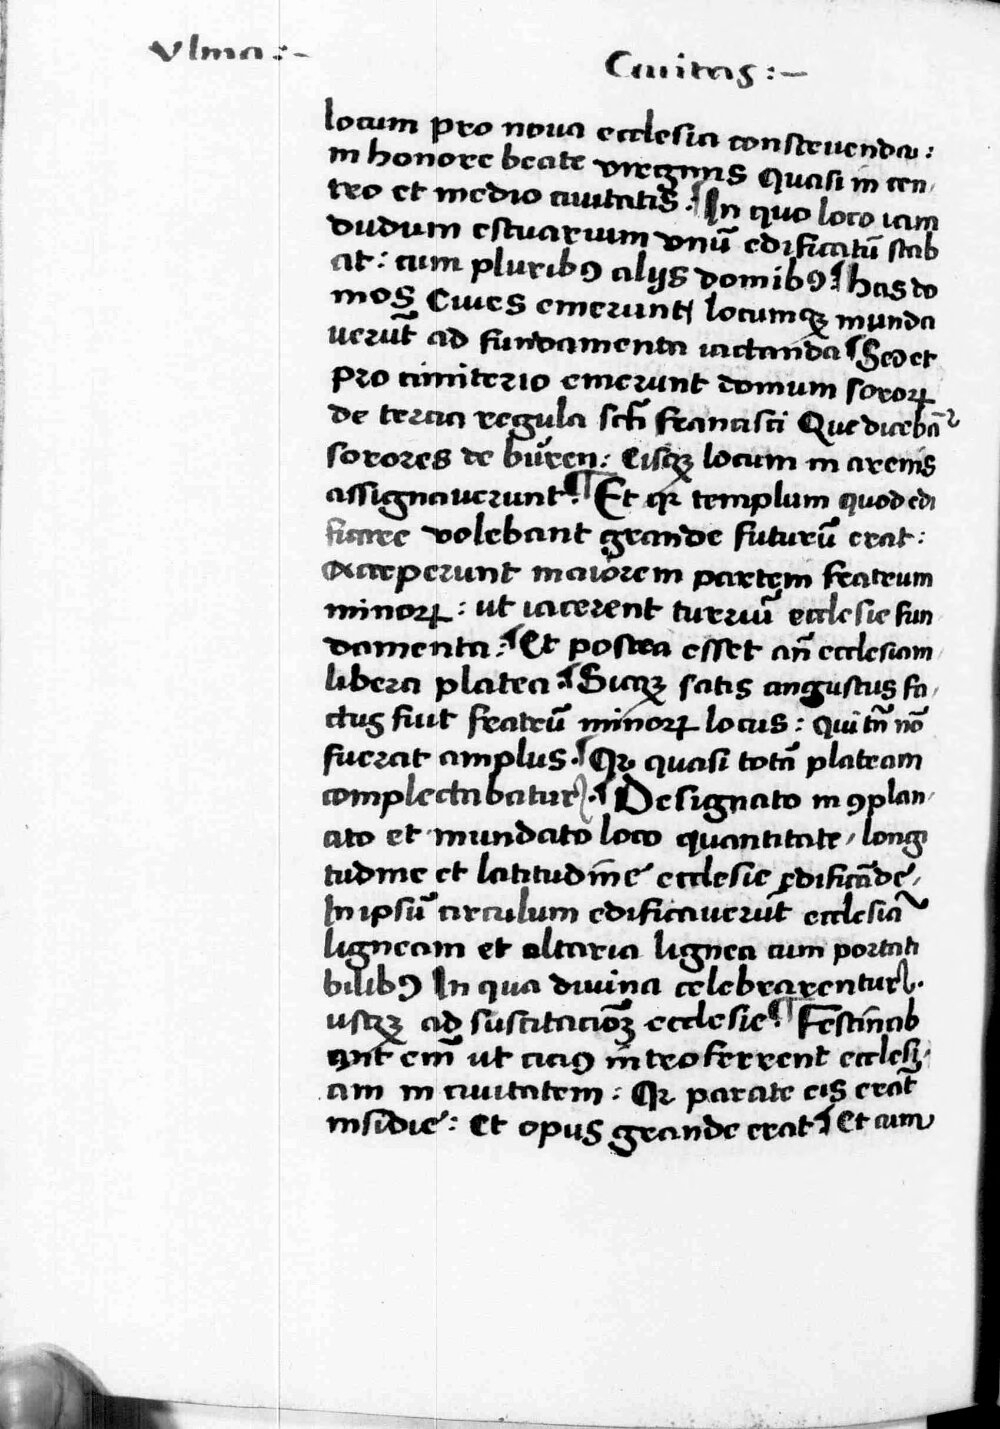 Vlma :-
Ciuitas :-
locum pro noua ecclesia construenda :
in honore beate virginis Quasi in cen,
tro et medio ciuitatis : ¶ In quo loco iam
dudum estuarium vnū edificatū stab
at : cum pluribꝰ alijs domibꝰ : ¶ has do
mos Ciues emerunt locumqꝫ munda
uerūt ad fundamenta iactanda ¶ Sed et
pro cimiterio emerunt domum sororꝝ
de tercia regula scti francisci Que dicebā
sorores de büren : Eisqꝫ locum in arenis
assignauerunt ¶ Et qꝛ templum quod edi
ficare volebant grande futurū erat :
acceperunt maiorem partem fratrum
minorꝝ : ut iacerent turriū ecclesie fun
damenta : ¶ Et postea esset añ ecclesiam
libera platea : ¶ Sicqꝫ satis angustus fa,
ctus fuit fratrū minorꝝ locus : Qui tñ nō
fuerat amplus . ¶ Qꝛ quasi totā plateam
complectabatur . ¶ Designato in ꝯplan,
ato et mundato loco quantitate / longi
tudine et latitudīne ecclesie edificāde /
In ipsū circulum edificauerūt ecclesiā
ligneam et altaria lignea cum portati
bilibꝰ In qua diuina celebrarentur .
usqꝫ ad suscitacioꝫ ecclesie ¶ Festinab
ant em̄ ut cicius introferrent ecclesi,
am in ciuitatem : Qꝛ parate eis erāt
insidie : Et opus grande erat ¶ Et cum